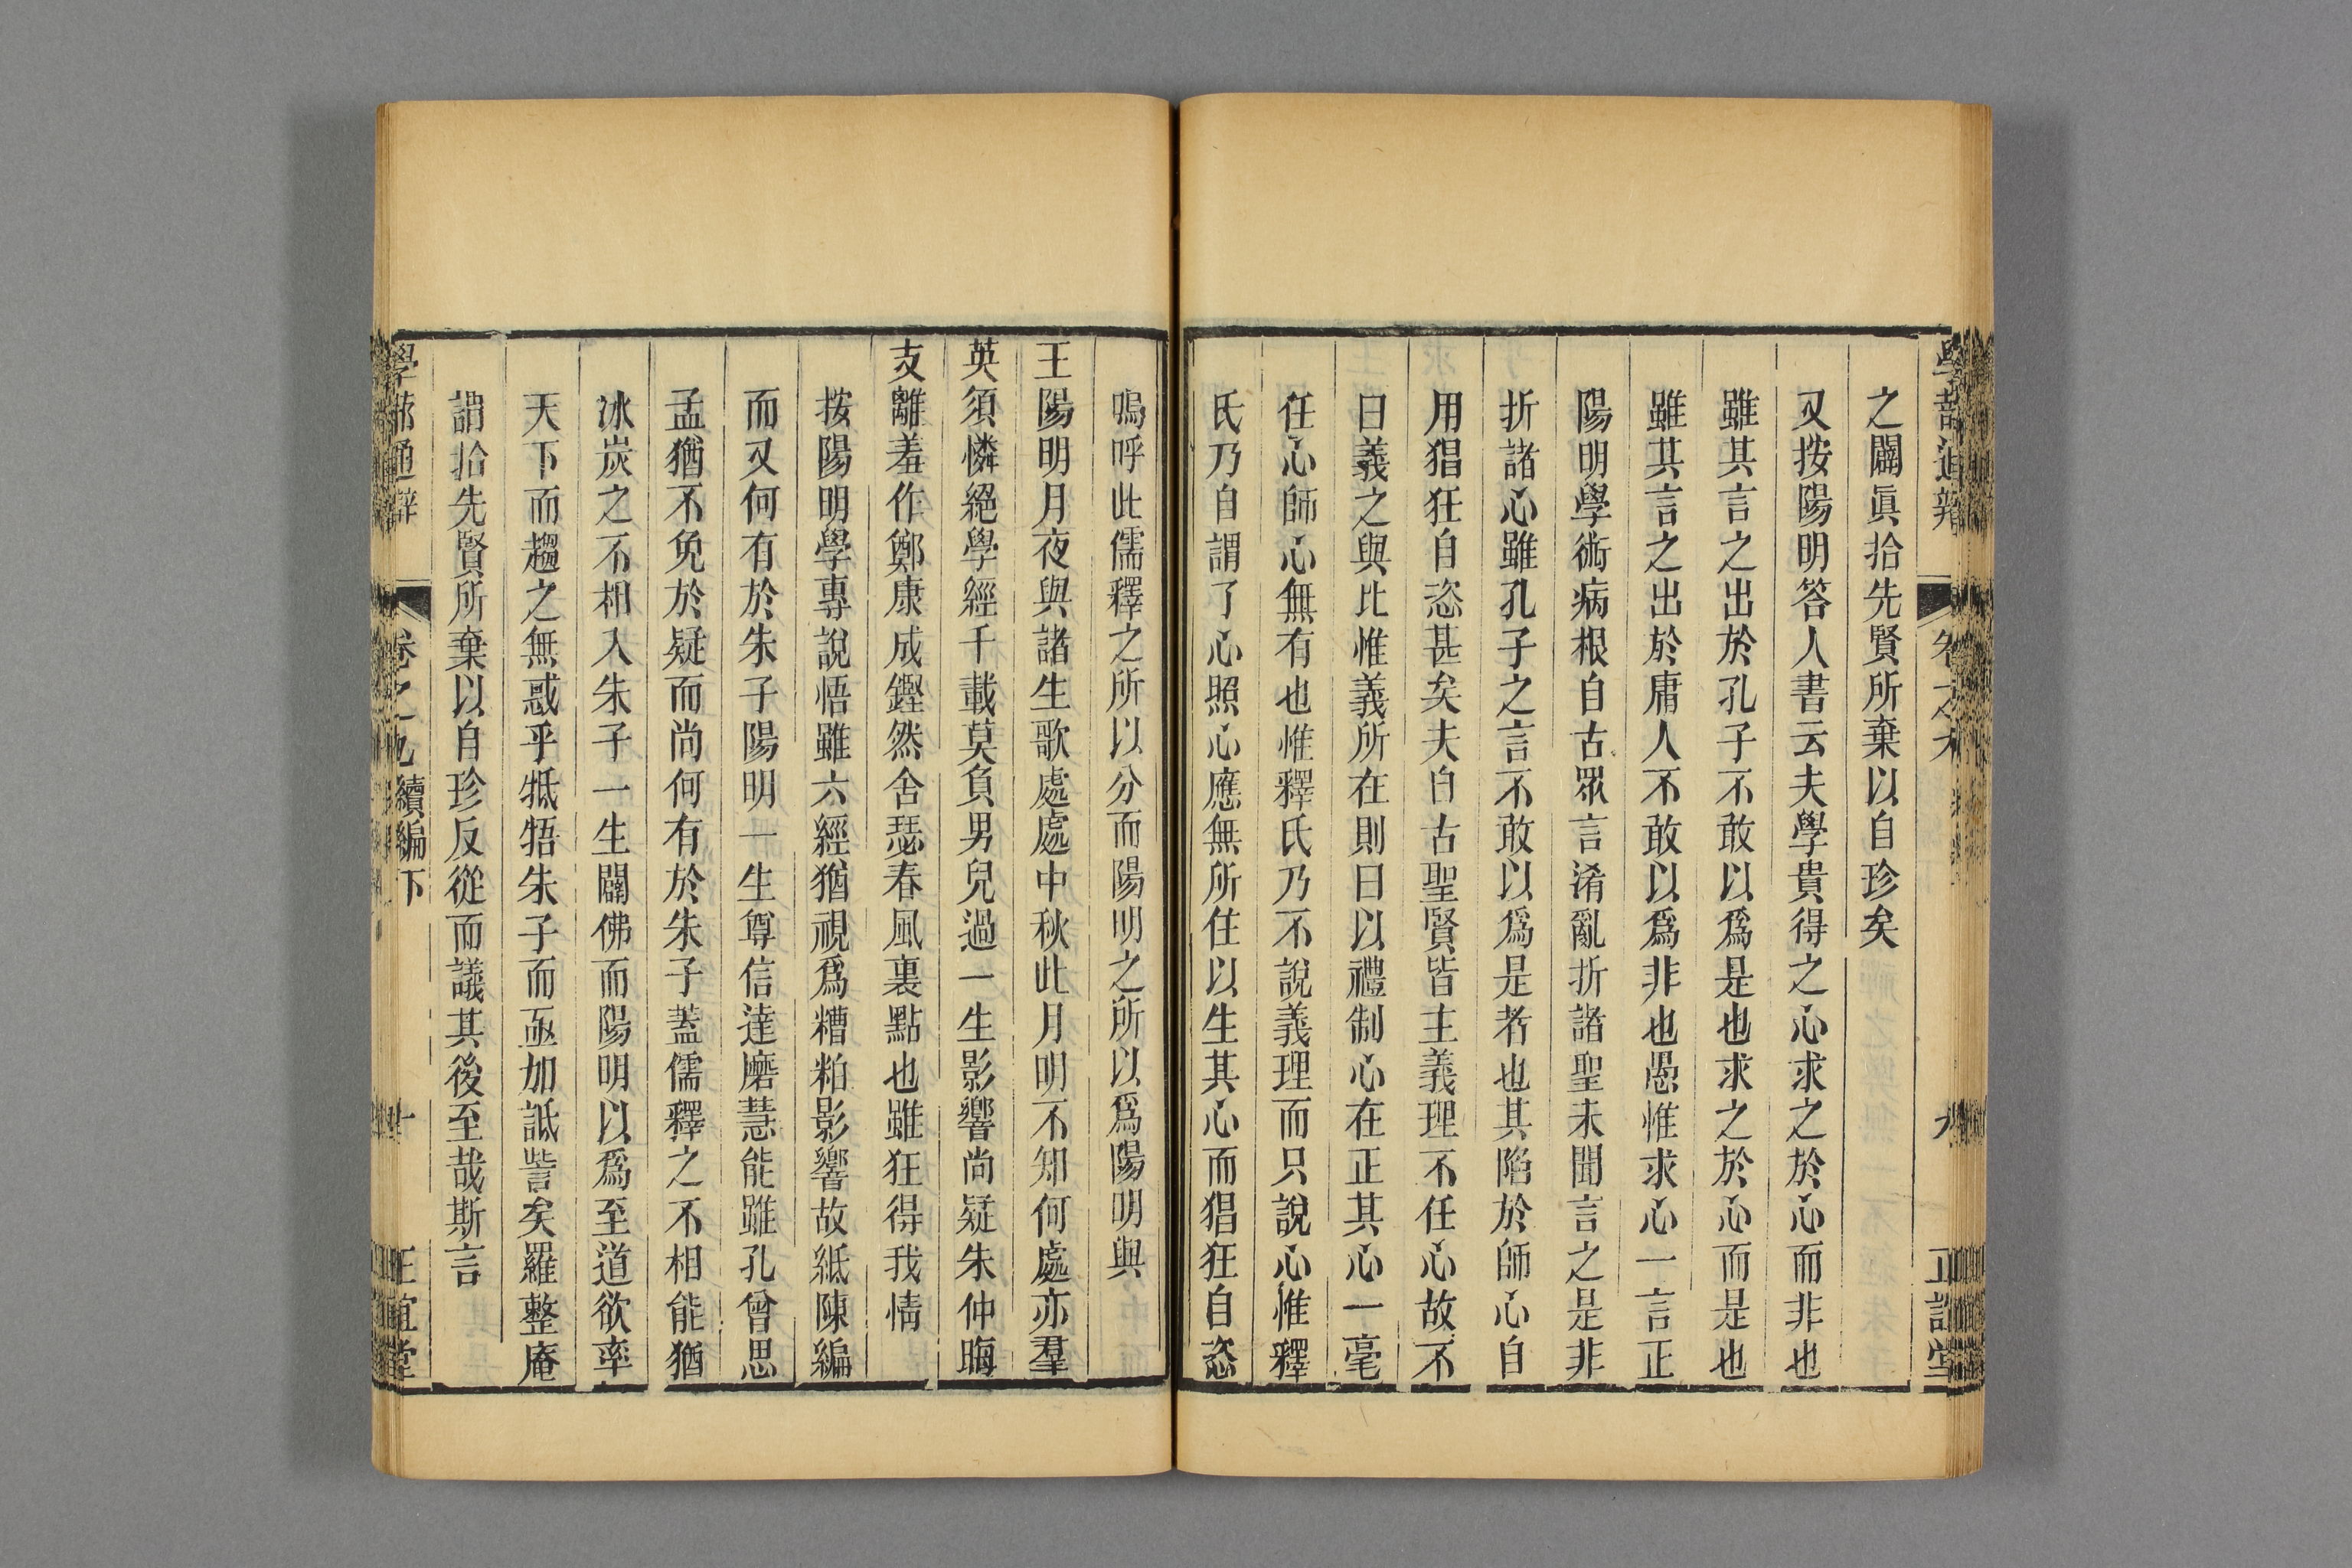 之闢眞拾先賢所棄以自珍矣
又按陽明答人書云夫學貴得之心求之於心而非也
雖其言之出於孔子不敢以爲是也求之於心而是也
雖其言之出於庸人不敢以爲非也愚惟求心一言正
陽明學術病根自古眾言淆亂折諸聖未聞言之是非
折諸心雖孔子之言不敢以爲是者也其陷於師心自
用猖狂自恣甚矣夫自古聖賢皆主義理不任心故不
曰義之與比惟義所在則曰以禮制心在正其心一毫
任心師心無有也惟釋氏乃不說義理而只說心惟釋
氏乃自謂了心照心應無所住以生其心而猖狂自恣
嗚呼此儒釋之所以分而陽明之所以爲陽明與
王陽明月夜與諸生歌處處中秋此月明不知何處亦羣
英須憐絕學經千載莫負男兒過一生影響尚疑朱仲晦
支離羞作鄭康成鏗然舍瑟春風裏點也雖狂得我情
按陽明學專說悟雖六經猶視爲糟粕影響故紙陳編
而又何有於朱子陽明一生尊信達磨慧能雖孔曾思
孟猶不免於疑而尚何有於朱子蓋儒釋之不相能猶
冰炭之不相入朱子一生闢佛而陽明以爲至道欲率
天下而趨之無惑乎牴牾朱子而亟加詆訾矣羅整庵
謂拾先賢所棄以自珍反從而議其後至哉斯言
學蔀通辯 卷之九續編下 十 正誼堂